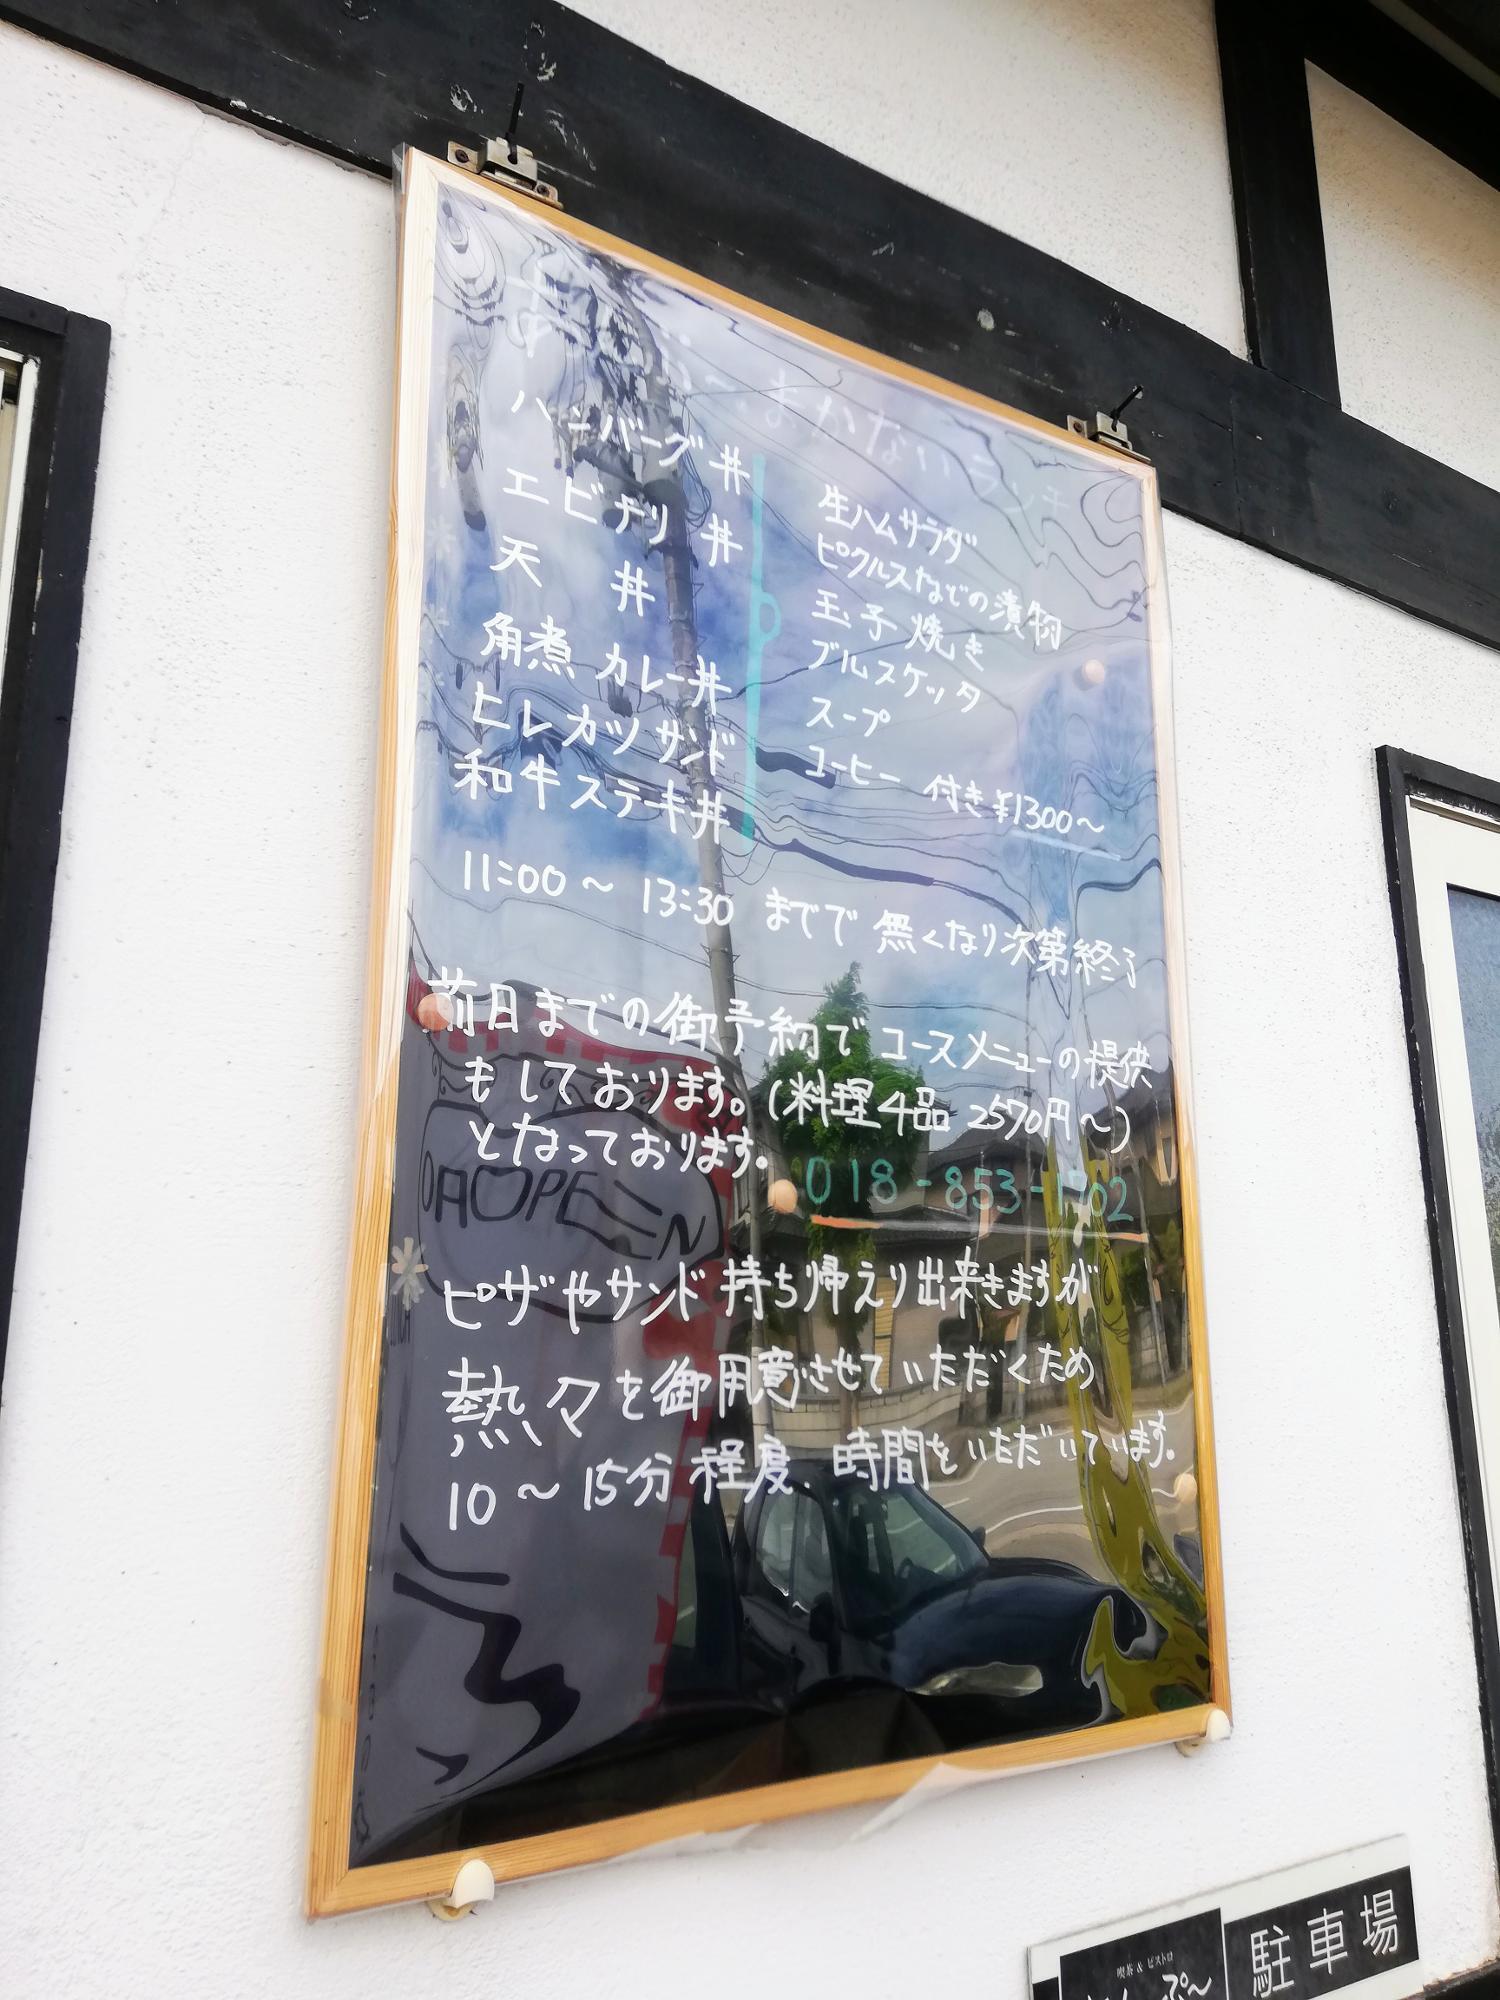 まかないランチ
ハンバーグ丼
エビチリ丼
天丼
角煮カレー丼
ヒレカツサンド
和牛ステーキ丼
生ハムサラダ
ピクルスなどの漬物
玉子焼き
ブルスケッタ
スープ
コーヒー 付き ¥1300〜
11:00 〜 13:30 までで 無くなり次第終了
前日までの御予約で コースメニューの提供
もしております。(料理4品 2570円〜)
となっております。 018-853-1702
ピザやサンド 持ち帰えり出来きますが
熱々を御用意させていただくため
10〜15分程度、時間をいただいています。
喫茶 & ビストロ
駐車場